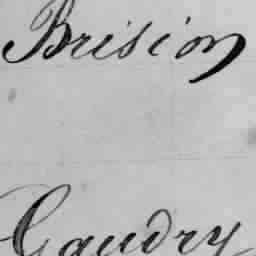 Brision
Gaudry